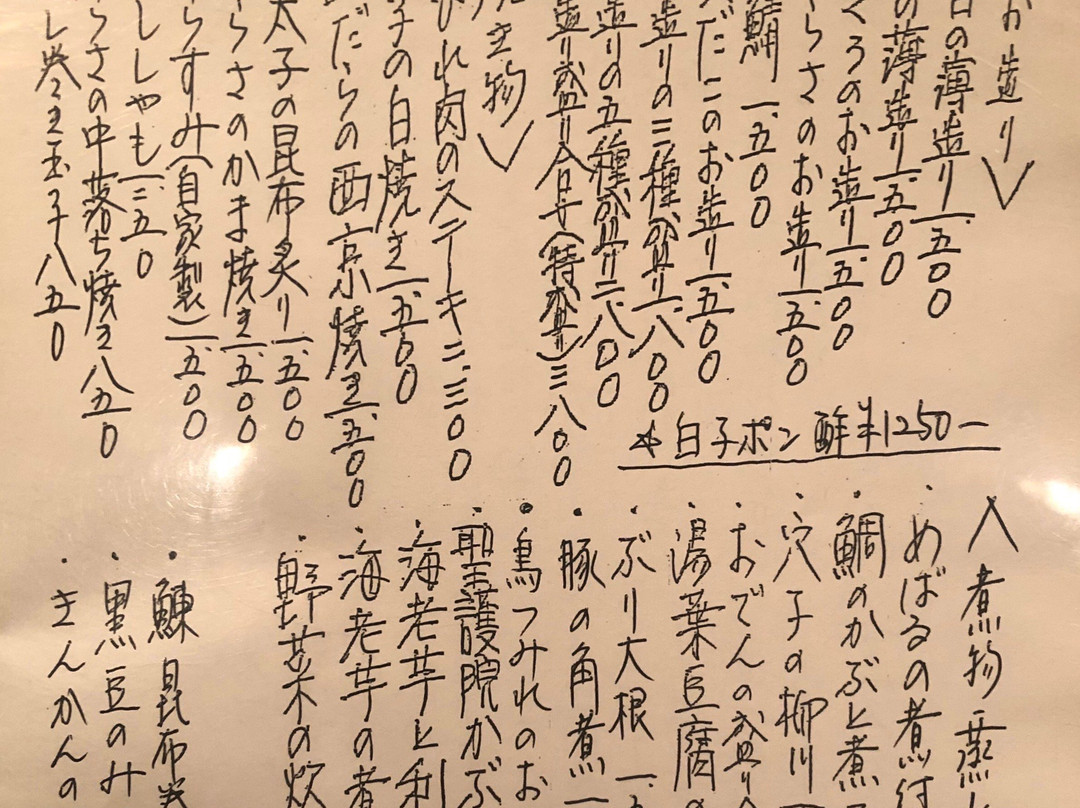 お造り
日の薄造り 一、五〇〇
の薄造り 一、五〇〇
くろのお造り 一、五〇〇
らさのお造り 一、五〇〇
だこのお造り 一、五〇〇
鯖 一、五〇〇
造りの三種盛り 一、八〇〇
造りの五種盛り 二、八〇〇
造り盛り合せ(特盛) 三、八〇〇
き物
ひれ肉のステーキ 二、三〇〇
子の白焼き 一、五〇〇
だらの西京焼き 一、五〇〇
太子の昆布炙り 一、五〇〇
らさのかま焼き 一、五〇〇
らすみ(自家製) 一、五〇〇
ししゃも 一、三五〇
らさの中落ち焼き 八五〇
し巻き玉子 八五〇
白子ポン酢 ¥1250ー
煮物 蒸し
・めばるの煮付
・鯛のかぶと煮
・穴子の柳川
・おでんの盛り合
・湯葉豆腐の
・ぶり大根 一、五
・豚の角煮 一
・鳥つみれのお
・聖護院かぶ
・海老芋と利
・海老芋の煮
・野菜の炊
・鰊昆布巻
・黒豆のみ
・きんかんの